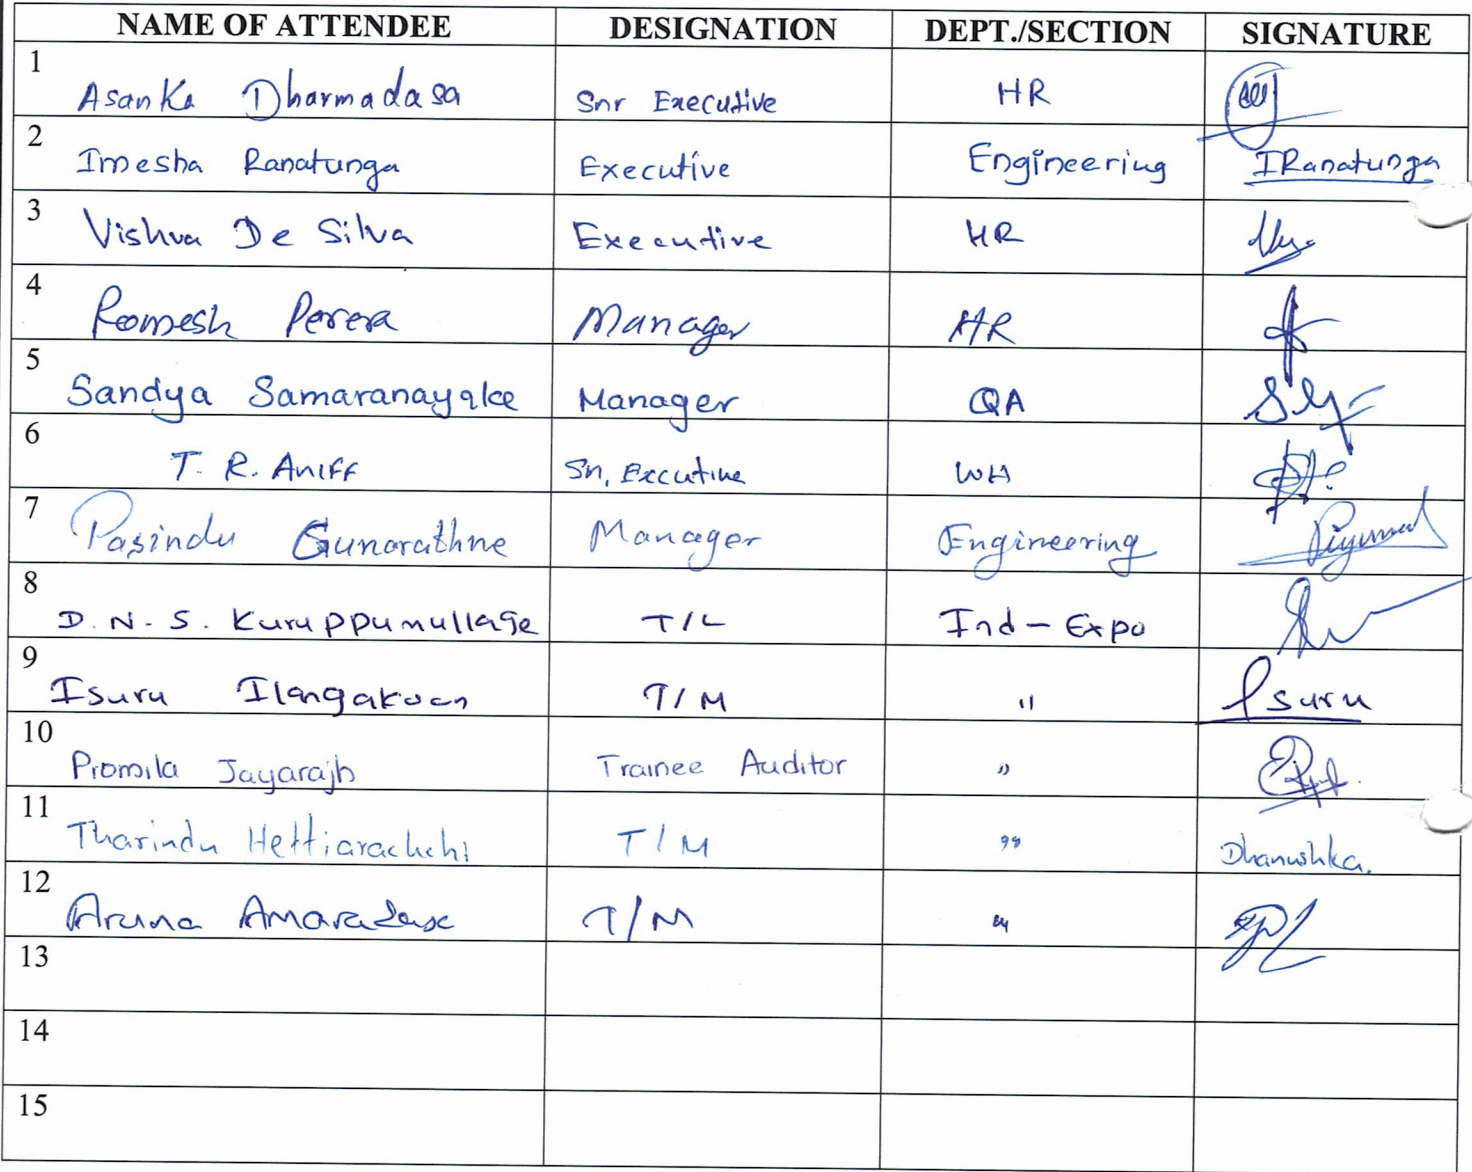 NAME OF ATTENDEE DESIGNATION DEPT./SECTION SIGNATURE
1 Asanka Dharmadasa Snr Executive HR
2 Imesha Ranatunga Executive Engineering IRanatunga
3 Vishva De Silva Executive HR
4 Romesh Perera Manager HR
5 Sandya Samaranayake Manager QA
6 T. R. Aniff Sn, Excutive WH
7 Pasindu Gunarathne Manager Engineering
8 D. N. S. Kuruppumullage T/L Ind - Expo
9 Isuru Ilangakoon T/M " Isuru
10 Promila Jayarajh Trainee Auditor "
11 Tharindu Hettiarachchi T/M " Dhanushka.
12 Aruna T/M "
13
14
15